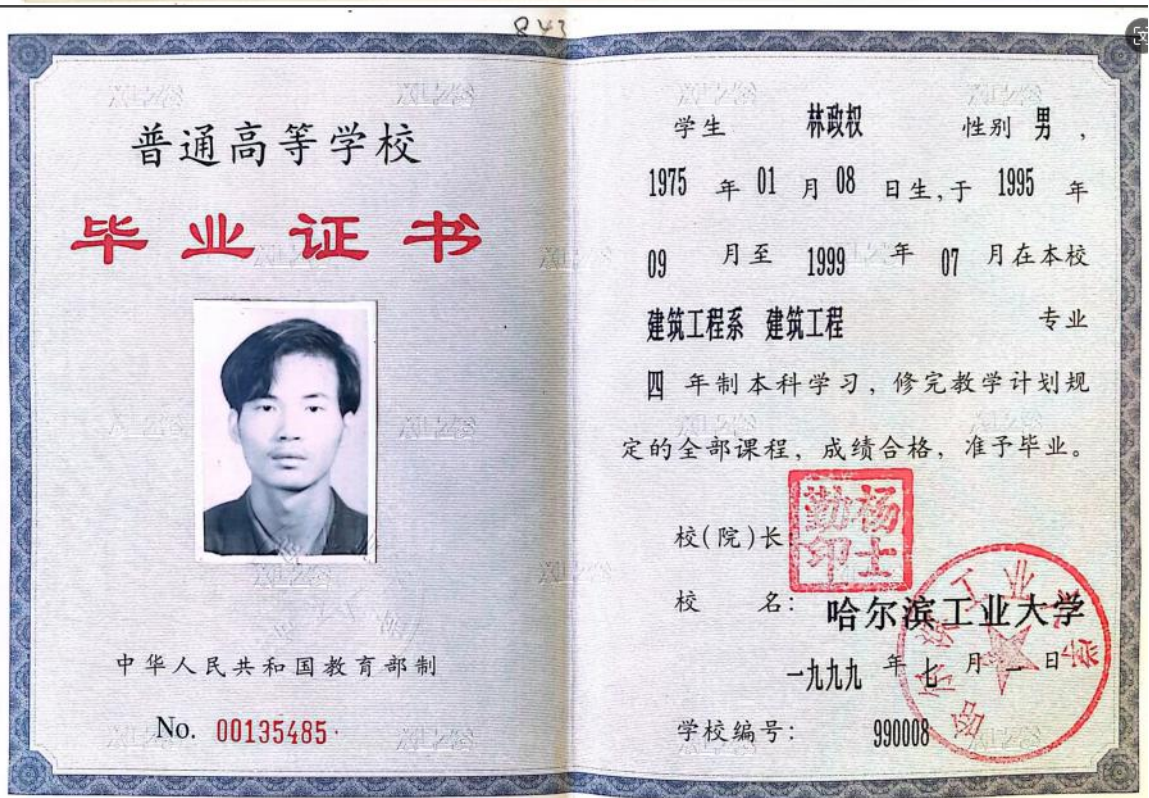 843
普通高等学校
毕业证书
中华人民共和国教育部制
No. 00135485
学生 林政权 性别 男,
1975 年 01 月 08 日生,于 1995 年
09 月至 1999 年 07 月在本校
建筑工程系 建筑工程 专业
四 年制本科学习,修完教学计划规
定的全部课程,成绩合格,准予毕业。
校(院)长:
杨士勤印
校 名: 哈尔滨工业大学
一九九九 年 七 月 日
学校编号: 990008
哈尔滨工业大学